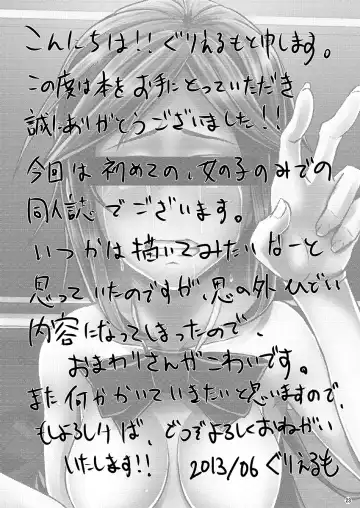 こんにちは!! ぐりえるもと申します。
この度は本をお手にとっていただき
誠にありがとうございました!!
今回は初めての、女の子のみでの
同人誌でございます。
いつかは描いてみたいなーと
思っていたのですが、思の外ひどい
内容になってしまったので、
おまわりさんがこわいです。
また何かかいていきたいと思いますので、
もしよろしければ、どうぞよろしくおねがい
いたします!! 2013/06 ぐりえるも